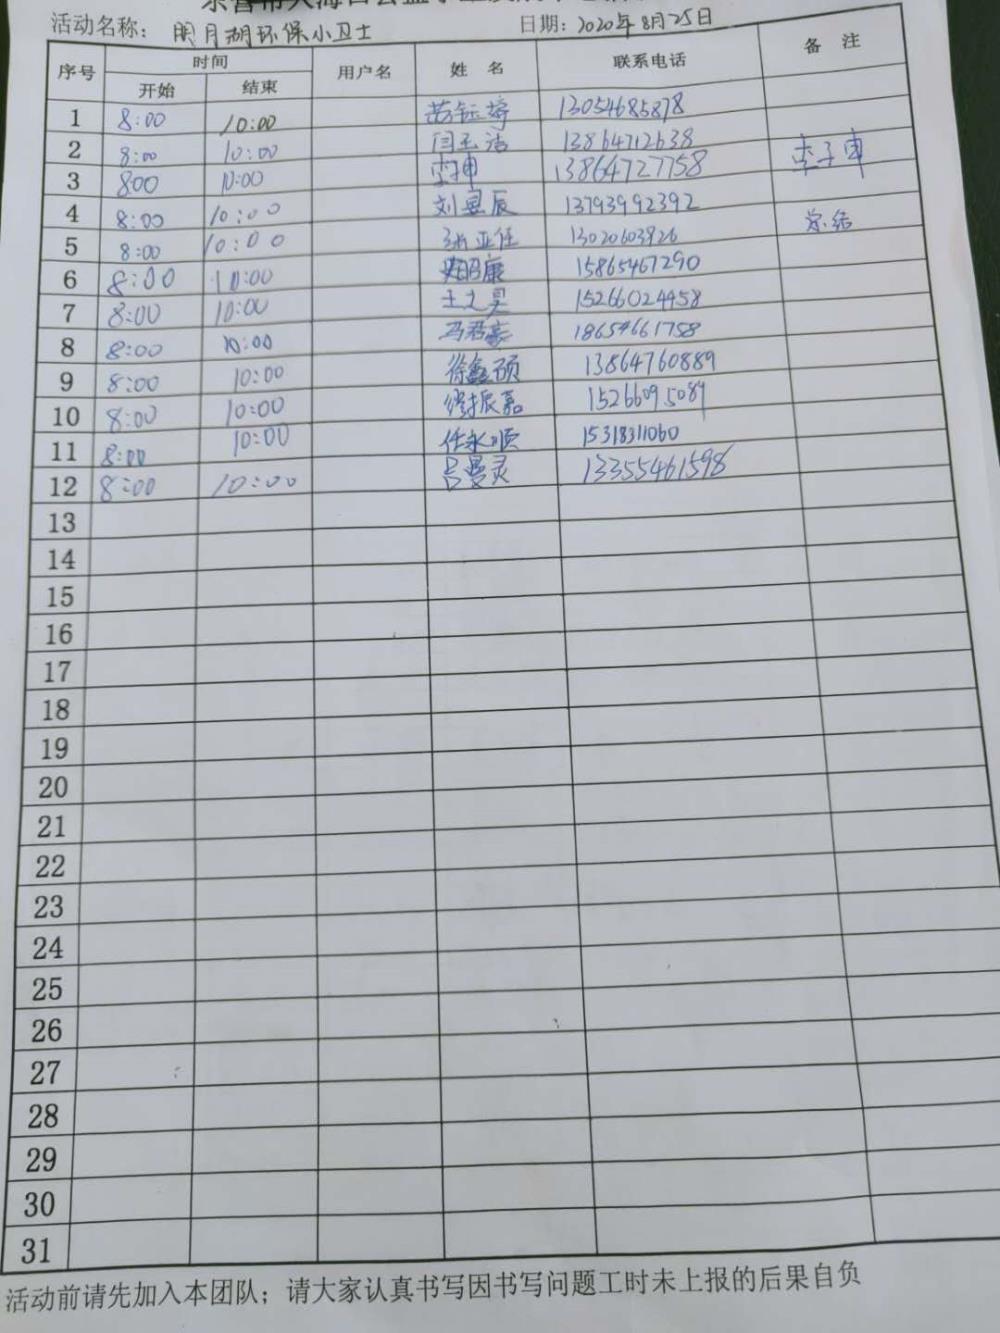 活动名称：明月湖环保小卫士 日期：2020年8月25日
序号 时间 用户名 姓名 联系电话 备注
开始 结束
1 8:00 10:00 13054685878
2 8:00 10:00 闫玉洁 13864712638
3 800 10:00 李子申 13864727758 李子申
4 8:00 10:00 刘昱辰 13793992392
5 8:00 10:00 13020603926 总结
6 8:00 10:00 15865467290
7 8:00 10:00 王之昊 15266024458
8 8:00 10:00 冯君豪 18654661758
9 8:00 10:00 徐鑫硕 13864760889
10 8:00 10:00 振嘉 15266095089
11 8:00 10:00 任永顺 15318311060
12 8:00 10:00 吕曼灵 13355461598
13
14
15
16
17
18
19
20
21
22
23
24
25
26
27
28
29
30
31
活动前请先加入本团队；请大家认真书写因书写问题工时未上报的后果自负